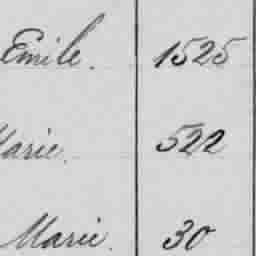 Emile. 1525
Marie. 522
Marie. 30